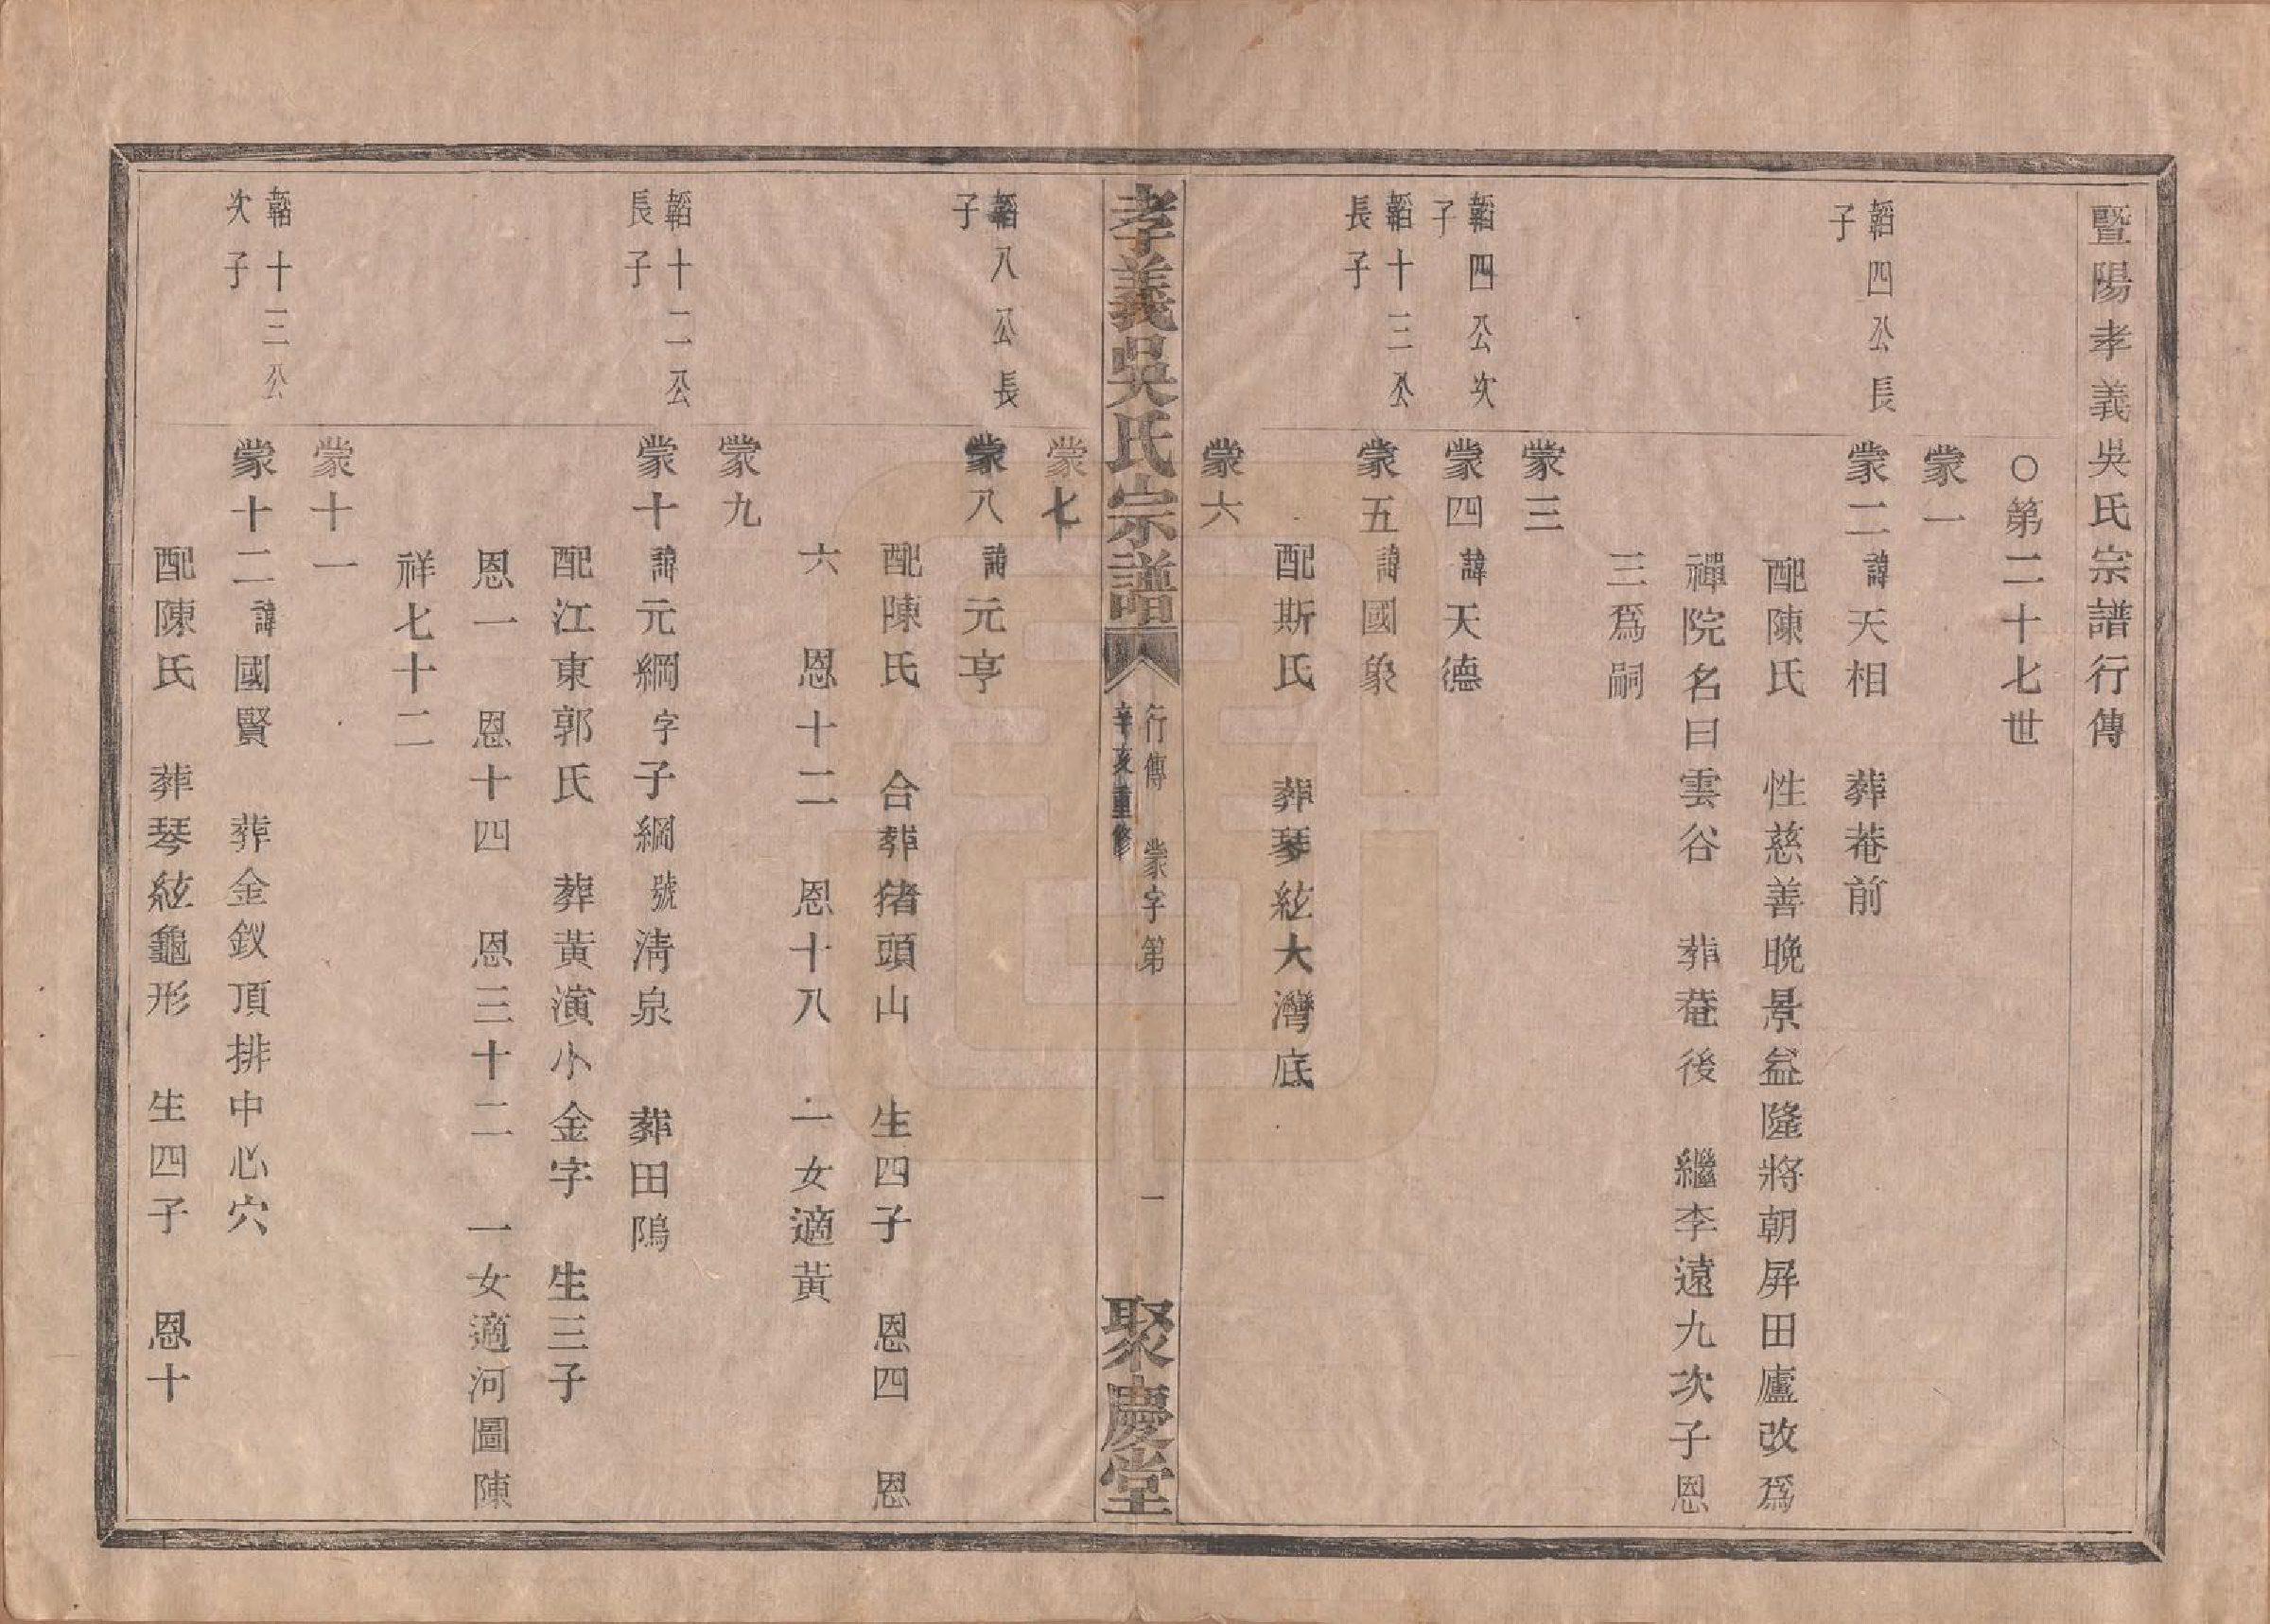 暨陽孝義吳氏宗譜行傳
○第二十七世
蒙一
韜四公長
子
蒙二諱天相 葬菴前
配陳氏 性慈善晚景益隆將朝屏田廬改爲
禪院名曰雲谷 葬菴後 繼李遠九次子恩
三爲嗣
蒙三
韜四公次
子
蒙四諱天德
韜十三公
長子
蒙五諱國象
配斯氏 葬琴絃大灣底
蒙六
孝義吳氏宗譜
行傳 蒙字第 一
辛亥重修
聚慶堂
蒙七
韜八公長
子
蒙八諱元亨
配陳氏 合葬猪頭山 生四子 恩四 恩
六 恩十二 恩十八 一女適黃
蒙九
韜十二公
長子
蒙十諱元綱字子綱號淸泉 葬田隖
配江東郭氏 葬黃演小金字 生三子
恩一 恩十四 恩三十二 一女適河圖陳
祥七十二
蒙十一
韜十三公
次子
蒙十二諱國賢 葬金釵頂排中心穴
配陳氏 葬琴絃龜形 生四子 恩十